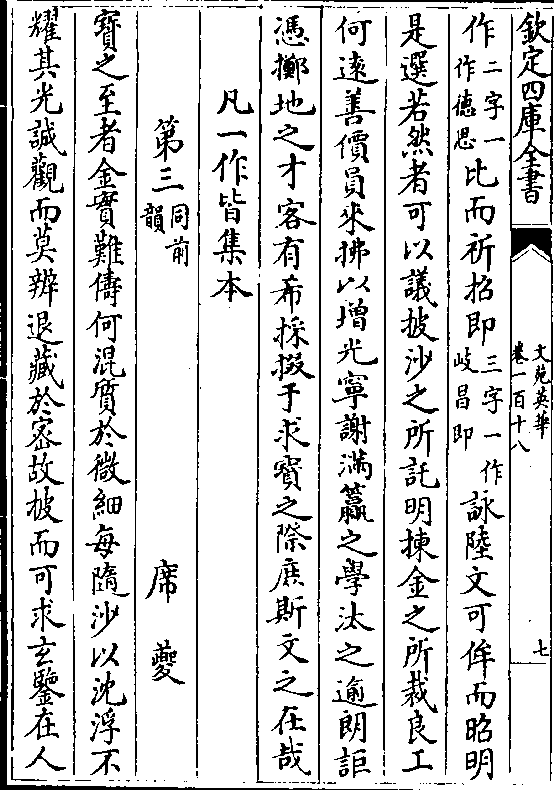 欽定四庫全書
文苑英華
卷一百十八
七
作二字一作德思比而祈招即三字一作岐昌即詠陸文可侔而昭明
是選若然者可以議披沙之所託明揀金之所裁良工
何遠善價員來拂以增光寧謝滿籯之學汰之逾朗詎
憑擲地之才客有希採掇于求賓之際庶斯文之在哉
凡一作皆集本
第三同前韻 席夔
寳之至者金實難儔何混質於微細每隨沙以沈浮不
耀其光誠觀而莫辨退藏於宻故披而可求玄鑒在人